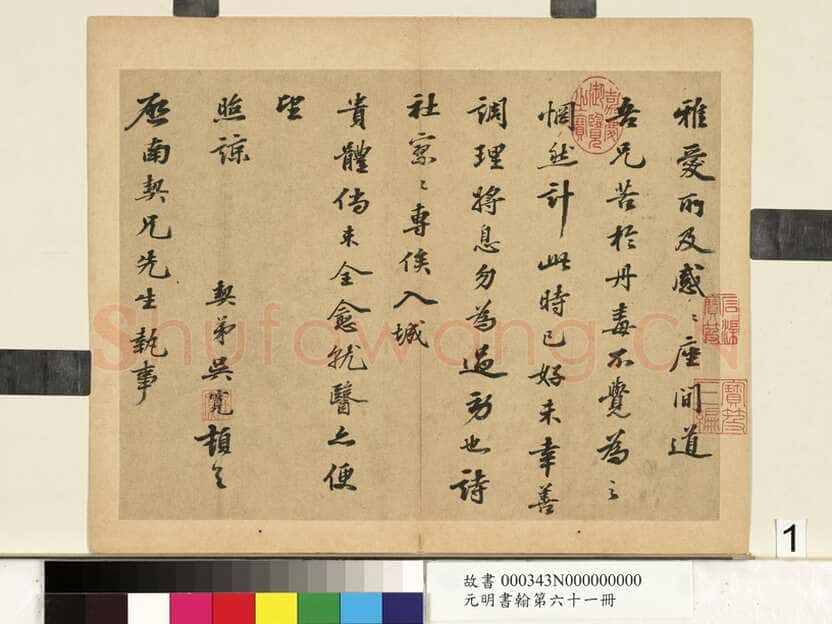 雅愛所及感〻座間道
吾兄苦於丹毒不覺為之
惘然計此時已好未幸善
調理將息勿為過動也詩
社寥〻專俟入城
貴體倘未全愈就醫亦便
望
照諒
契弟吳寬頓首
啟南契兄先生執事
嘉慶御覽之寶
石渠寶笈
寶笈三編
Shufawang.CN
1
故書 000343N000000000
元明書翰第六十一冊